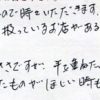 ので時をいただきます。
扱っているお店がある
さですが、手を重ねた
たものがほしい時も